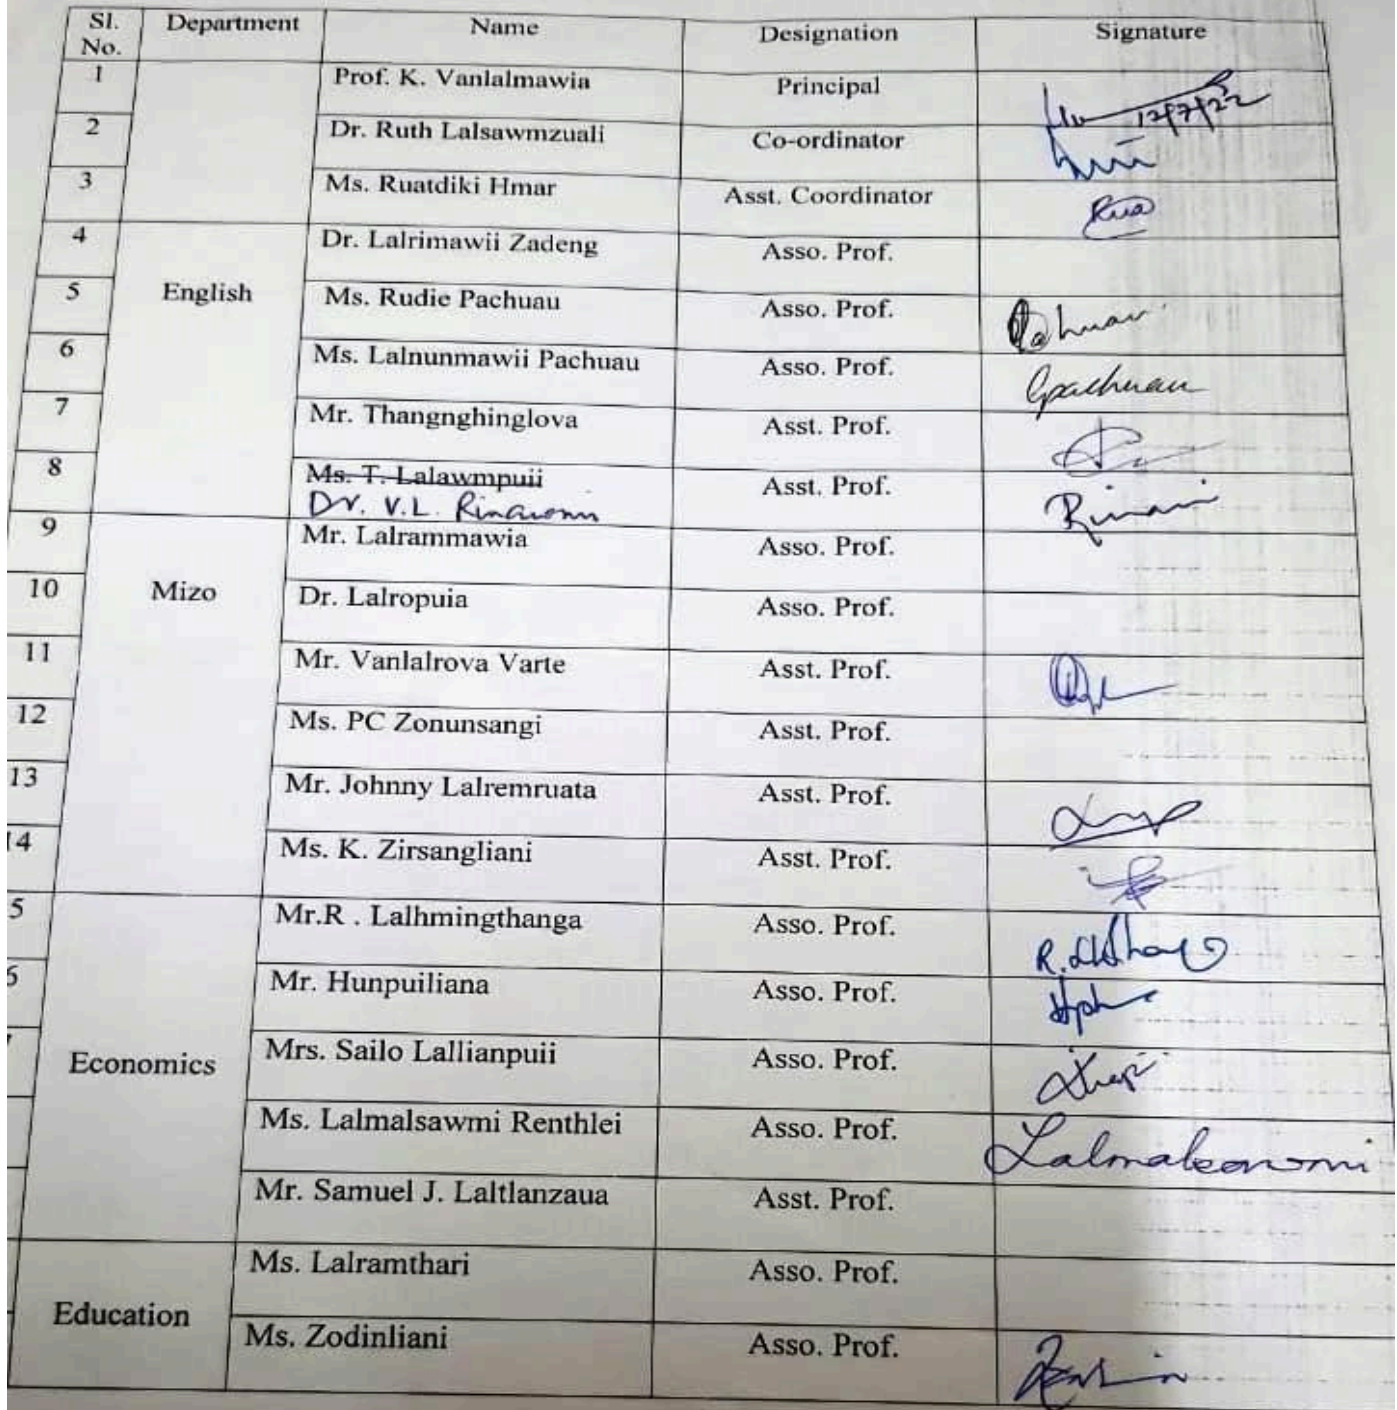 Sl. No. Department Name Designation Signature
1 Prof. K. Vanlalmawia Principal
12/7/22
2 Dr. Ruth Lalsawmzuali Co-ordinator
3 Ms. Ruatdiki Hmar Asst. Coordinator Rua
4 Dr. Lalrimawii Zadeng Asso. Prof.
5 English Ms. Rudie Pachuau Asso. Prof.
6 Ms. Lalnunmawii Pachuau Asso. Prof.
7 Mr. Thangnghinglova Asst. Prof.
8 Ms. T. Lalawmpuii Asst. Prof.
Dr. V.L.
9 Mr. Lalrammawia Asso. Prof.
10 Mizo Dr. Lalropuia Asso. Prof.
11 Mr. Vanlalrova Varte Asst. Prof.
12 Ms. PC Zonunsangi Asst. Prof.
13 Mr. Johnny Lalremruata Asst. Prof.
14 Ms. K. Zirsangliani Asst. Prof.
5 Mr.R . Lalhmingthanga Asso. Prof.
6 Mr. Hunpuiliana Asso. Prof.
Economics Mrs. Sailo Lallianpuii Asso. Prof.
Ms. Lalmalsawmi Renthlei Asso. Prof.
Mr. Samuel J. Laltlanzaua Asst. Prof.
Ms. Lalramthari Asso. Prof.
Education Ms. Zodinliani Asso. Prof.